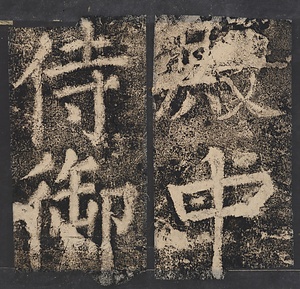 殿中
侍御